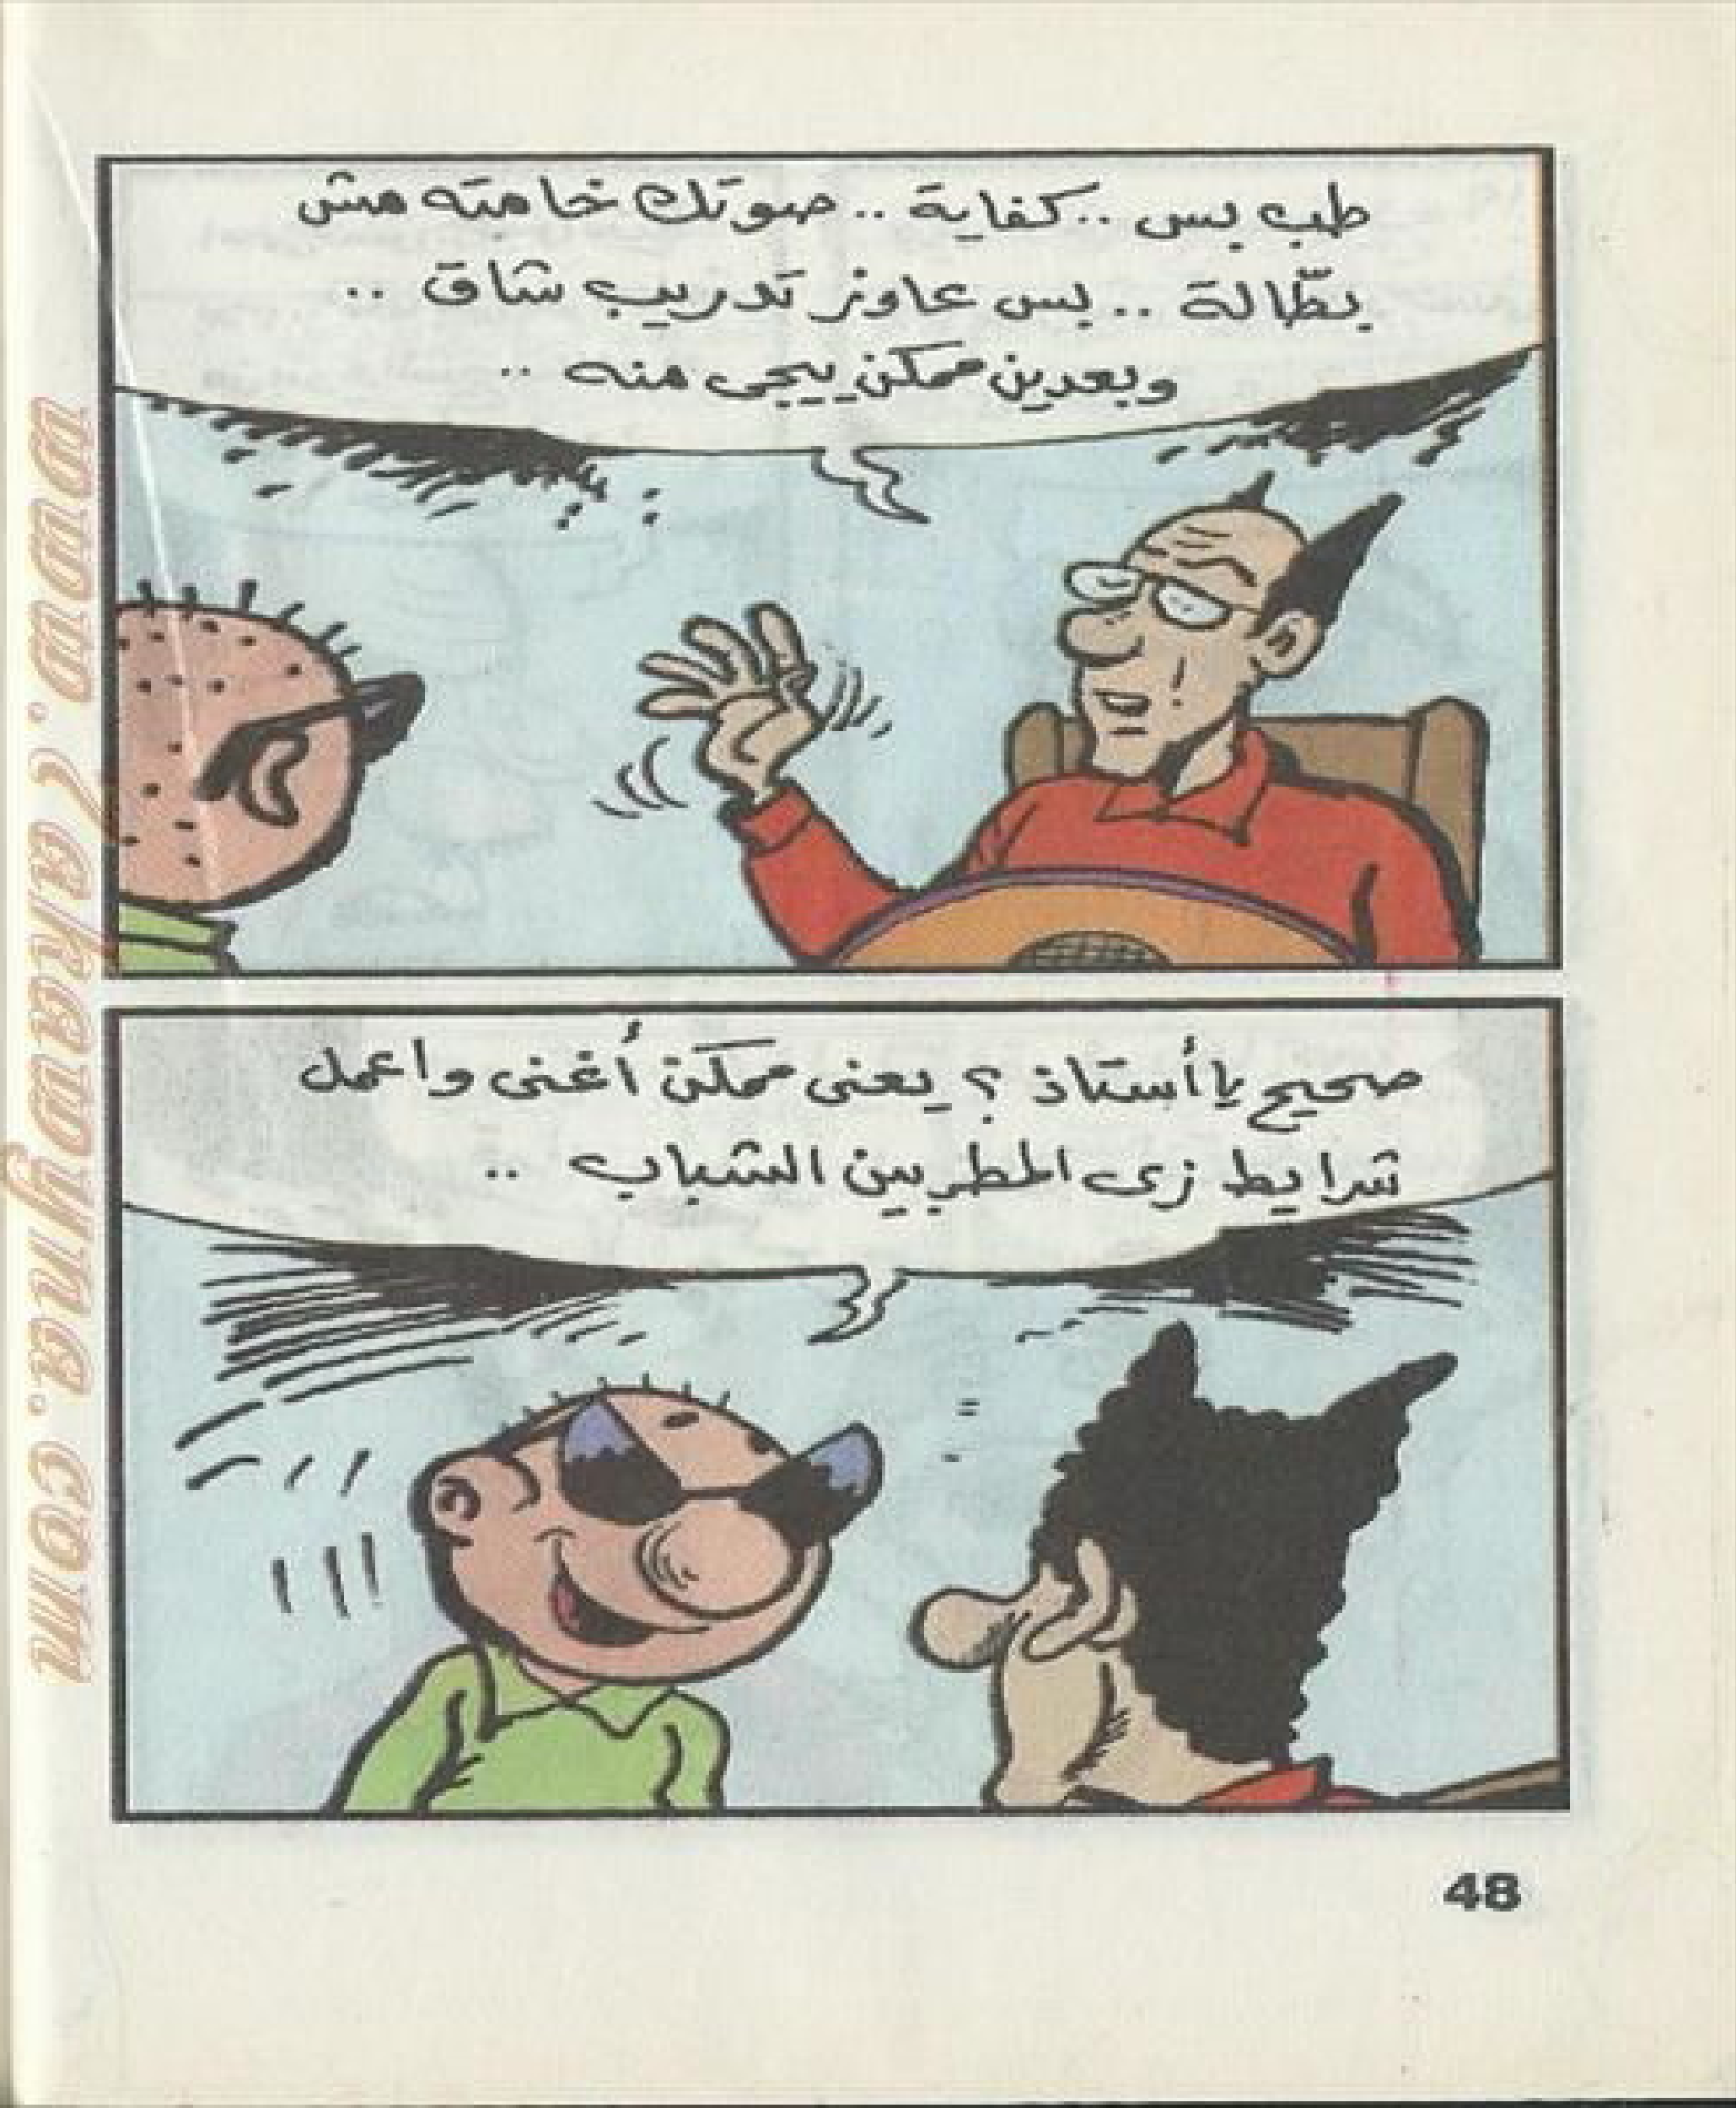 طب بس .. كفاية .. صوتك خامته مش
بطّالة .. بس عاوز تدريب شاق ..
وبعدين ممكن ييجى منه ..
صحيح يا أستاذ ؟ يعنى ممكن أُغنى واعمل
شرايط زى المطربين الشباب ..
48